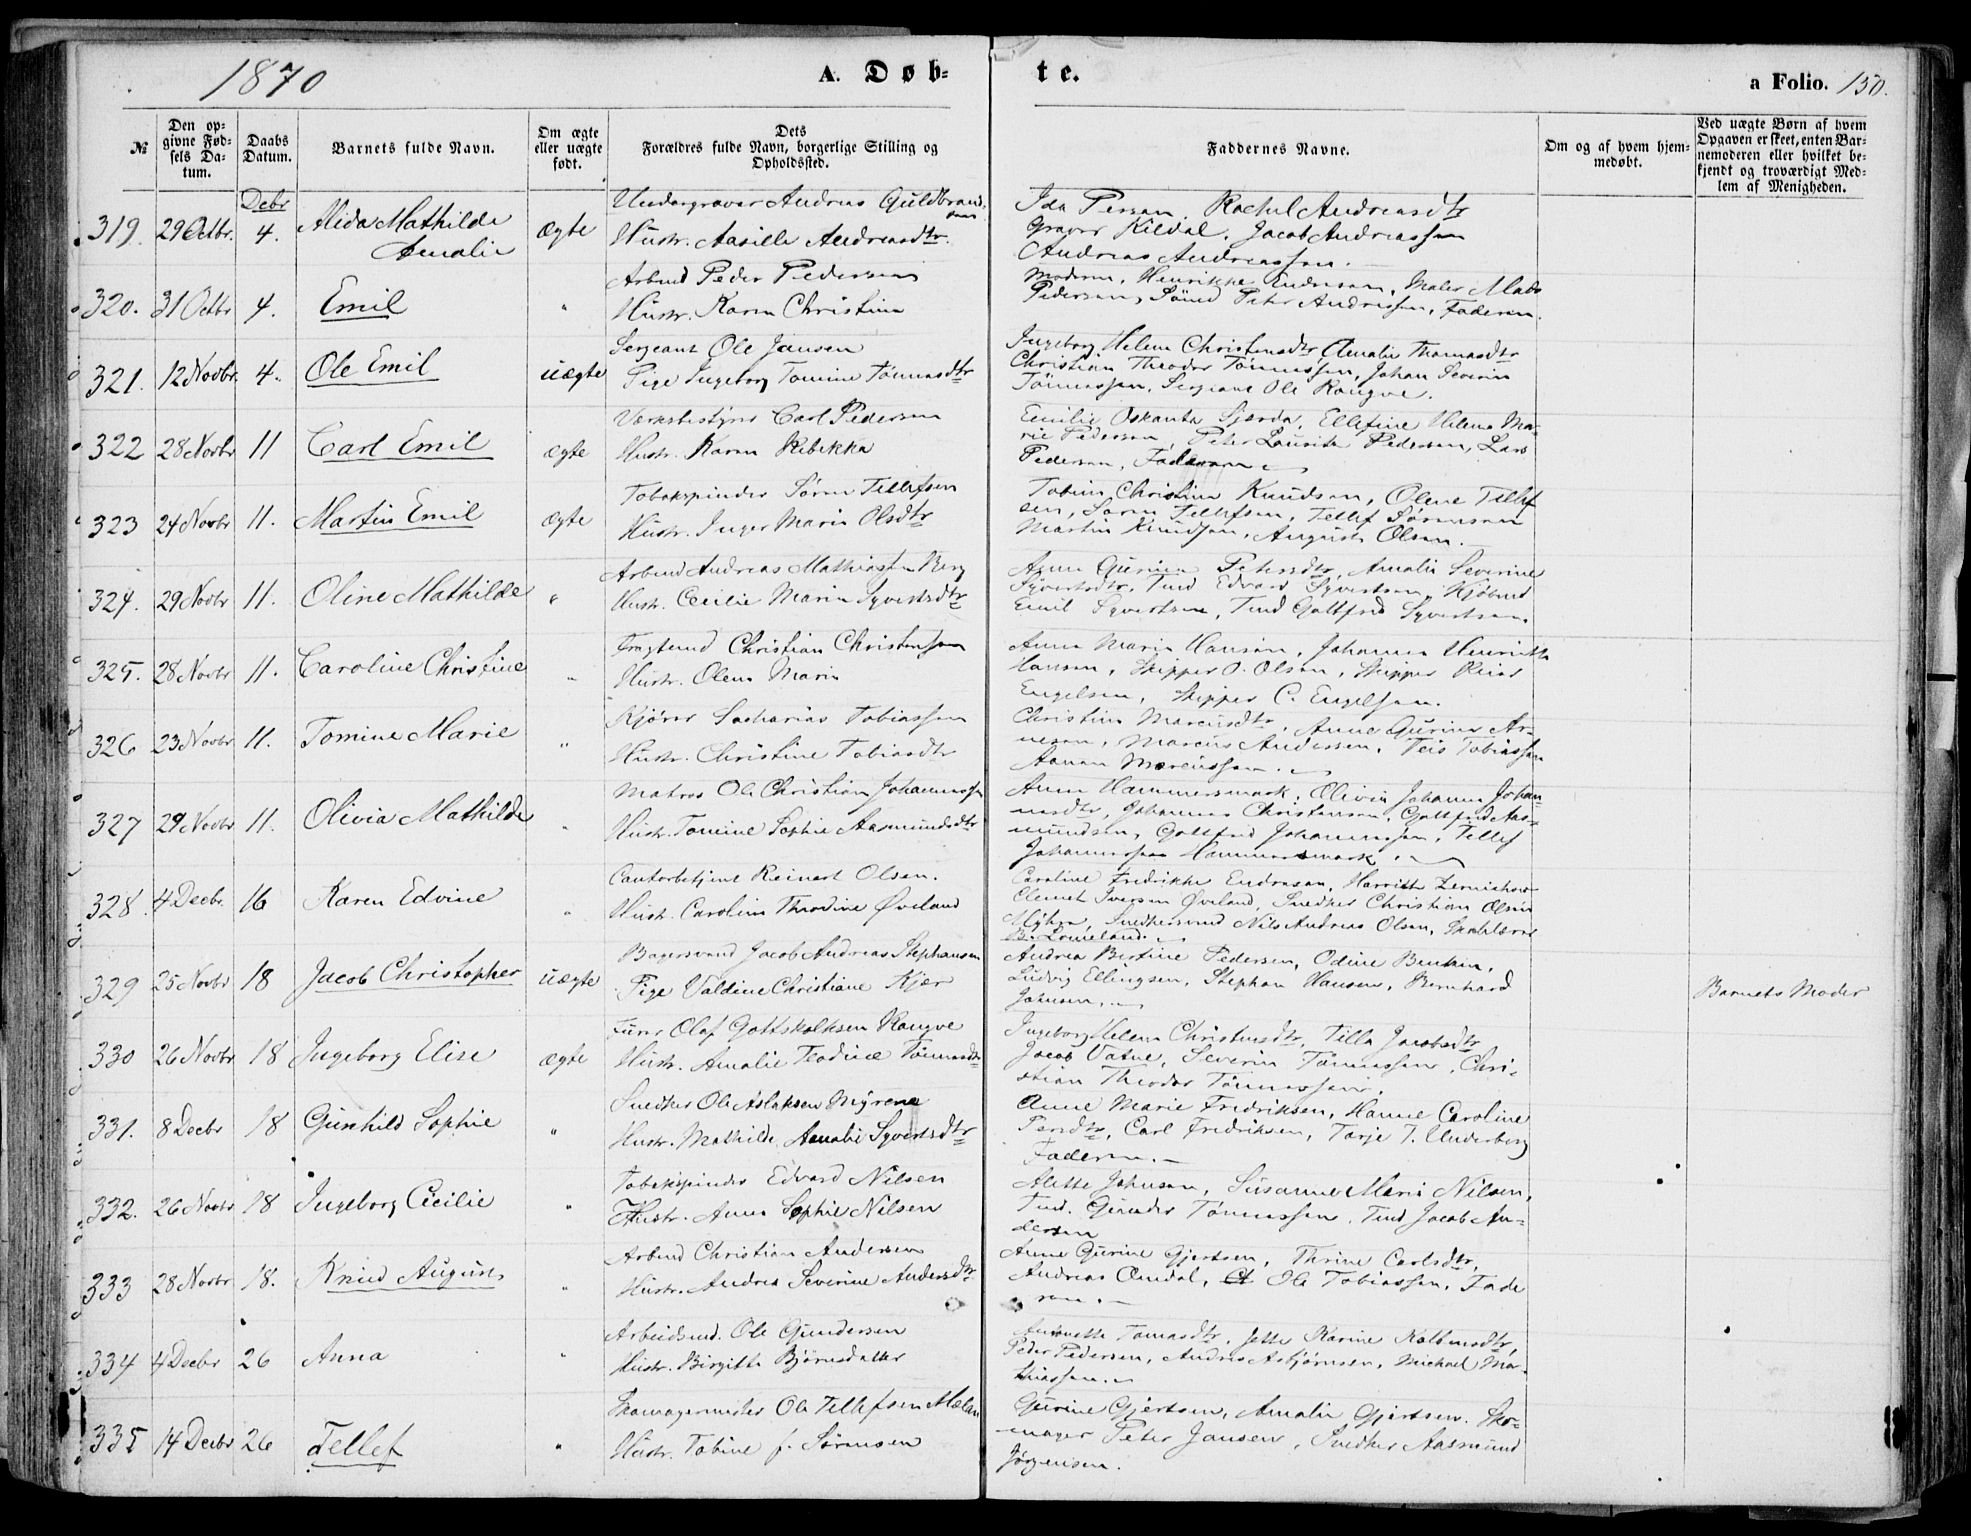 1870
A. Døb-
te.
a Folio. 150.
№
Den op-
givne Fød-
sels Da-
tum.
Daabs
Datum.
Barnets fulde Navn.
Om ægte
eller uægte
født.
Dets
Forældres fulde Navn, borgerlige Stilling og
Opholdssted.
Faddernes Navne.
Om og af hvem hjem-
medøbt.
Ved uægte Børn af hvem
Opgaven er skeet, enten Bar-
nemoderen eller hvilket be-
kjendt og troværdigt Med-
lem af Menigheden.
Decbr
319. 29 Octbr. 4. Alida Mathilde
Amalie
ægte
Undergraver Andreas Guldbrand-
sen
Hustr. Aasille Andreasdtr.
Ida Persen, Rachel Andreasdtr
Graver Kildal, Jacob Andreassen
Andreas Andreassen.
320. 31 Octbr 4. Emil "
Arbmd Peder Pedersen
Hustr. Karen Christine
Moderen, Henrikke Endresen, Maler Mads
Pedersen, Sömd Peter Andreassen, Faderen.
321. 12 Novbr. 4. Ole Emil uægte
Sergeant Ole Jansen
Pige Ingeborg Tomine Tönnesdtr
Ingeborg Helene Christensdtr, Amalie Thomasdtr
Christian Theodor Tönnessen, Johan Severin
Tönnessen, Sergeant Ole Rougve.
322 28 Novbr 11 Carl Emil ægte
Værksbestyrer Carl Pedersen
Hustr. Karen Rebekka
Emilie Oskanta Sjerda, Ellefine Helene Ma-
rie Pedersen, Peter Lauritz Pedersen, Lars
Pedersen, Faderen
323 24 Novbr 11. Martin Emil ægte
Tobakspinder Sören Tellefsen
Hustr. Inger Marie Olsdtr
Tobine Christine Knudsen, Olene Tellef
sen, Sören Tellefsen, Tellef Sörensen
Martin Knudsen, August Olsen.
324. 29 Novbr 11. Oline Mathilde "
Arbmd Andreas Mathiassen Berg
Hustr. Cecilie Marie Syvertsdtr
Anne Gurine Petersdtr, Amalie Severine
Syvertsdtr, Tmd Edvard Syvertsen, Kjöbmd
Emil Syvertsen, Tmd Gottfred Syvertsen.
325. 28 Novbr 11. Caroline Christine "
Fragtemd Christian Christensen
Hustr. Olene Marie
Anne Marie Hansen, Johanne Henrikke
Hansen, Skipper O. Olsen, Skipper
Engelsen, Skipper C. Engelsen.
326 23 Novbr 11. Tomine Marie "
Kjörer Sacharias Tobiassen
Hustr. Christine Tobiasdtr
Christine Marcusdtr, Anne Gurine Ar-
nesen, Marcus Andersen, Teis Tobiassen
Aanen Marcussen.
327 29 Novbr 11. Olivia Mathilde "
Matros Ole Christian Johannessen
Hustr. Tomine Sophie Aasmundsdtr
Anne Hammersmark, Olivia Johanne Johan-
nesdtr, Johannes Christensen, Gottfred Aas-
mundsen, Gottfred Johannessen, Tellef
Johannessen Hammersmark.
328. 4 Decbr. 16 Karen Edvine "
Cantorbetjent Reinert Olsen.
Hustr. Caroline Theodine Øveland
Caroline Fredrikke Endresen, Harriette
Clemet Iversen Øveland, Snedker Christian Olsen
Myhre, Snedkersvend Nils Andreas Olsen, Skolelærer
Lomeland.
329 25 Novbr 18 Jacob Christopher uægte
Bagersvend Jacob Andreas Stephansen
Pige Valdine Christiane Kjær
Andrea Bertine Pedersen, Odine
Ludvig Ellingsen, Stephan Hansen, Bernhard
Johnsen.
Barnets Moder
330 26 Novbr 18 Ingeborg Elise ægte
Furer Olaf Gottskalksen Rougve
Hustr. Amalie Teodine Tönnesdtr
Ingeborg Helene Christensdtr, Tilla Jacobsdtr
Jacob Vatne, Severin Tönnessen, Chri-
stian Theodor Tönnessen.
331. 8 Decbr 18 Gunhild Sophie "
Snedker Ole Aslaksen Myrene
Hustr. Mathilde Amalie Syvertsdtr
Anne Marie Fredriksen, Hanne Caroline
Persdtr, Carl Fredriksen, Tarje T. Underberg
Faderen.
332. 26 Novbr 18 Ingeborg Cecilie "
Tobakspinder Edvard Nilsen
Hustr. Anne Sophie Nilsen
Alette Johnsen, Susanne Marie Nilsen,
Tmd. Gunder Tönnessen, Tmd Jacob An-
dersen
333 28 Novbr 18. Knud August "
Arbmd Christian Andersen
Hustr. Andrea Severine Andersdtr
Anne Gurine Gjertsen, Thrine Carlsdtr,
Andreas Omdal, Ole Tobiassen, Fade
ren.
334 4 Decbr 26 Anna "
Arbeidsmd. Ole Gundersen
Hustr. Birgitte Björnsdatter
Antonette Tomasdtr, Jette Karine Kolbensdtr,
Peder Pedersen, Andreas Asbjörnsen, Michael Ma-
thiassen.
335 14 Decbr 26 Tellef "
Skomagermester Ole Tellefsen Mælan
Hustr. Tobine f. Sörensen
Gurine Gjertsen, Amalie Gjertsen, Sko-
mager Peter Jansen, Snedker Aasmund
Jörgensen.